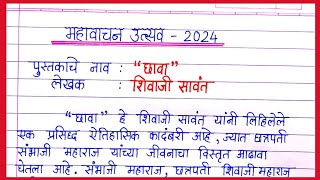 महावाचन उत्सव - 2024
पुस्तकाचे नाव : "छावा"
लेखक : शिवाजी सावंत
"छावा" हे शिवाजी सावंत यांनी लिहिलेले
एक प्रसिद्ध ऐतिहासिक कादंबरी आहे, ज्यात छत्रपती
संभाजी महाराज यांच्या जीवनाचा विस्तृत आढावा
घेतला आहे. संभाजी महाराज, छत्रपती शिवाजी महाराज